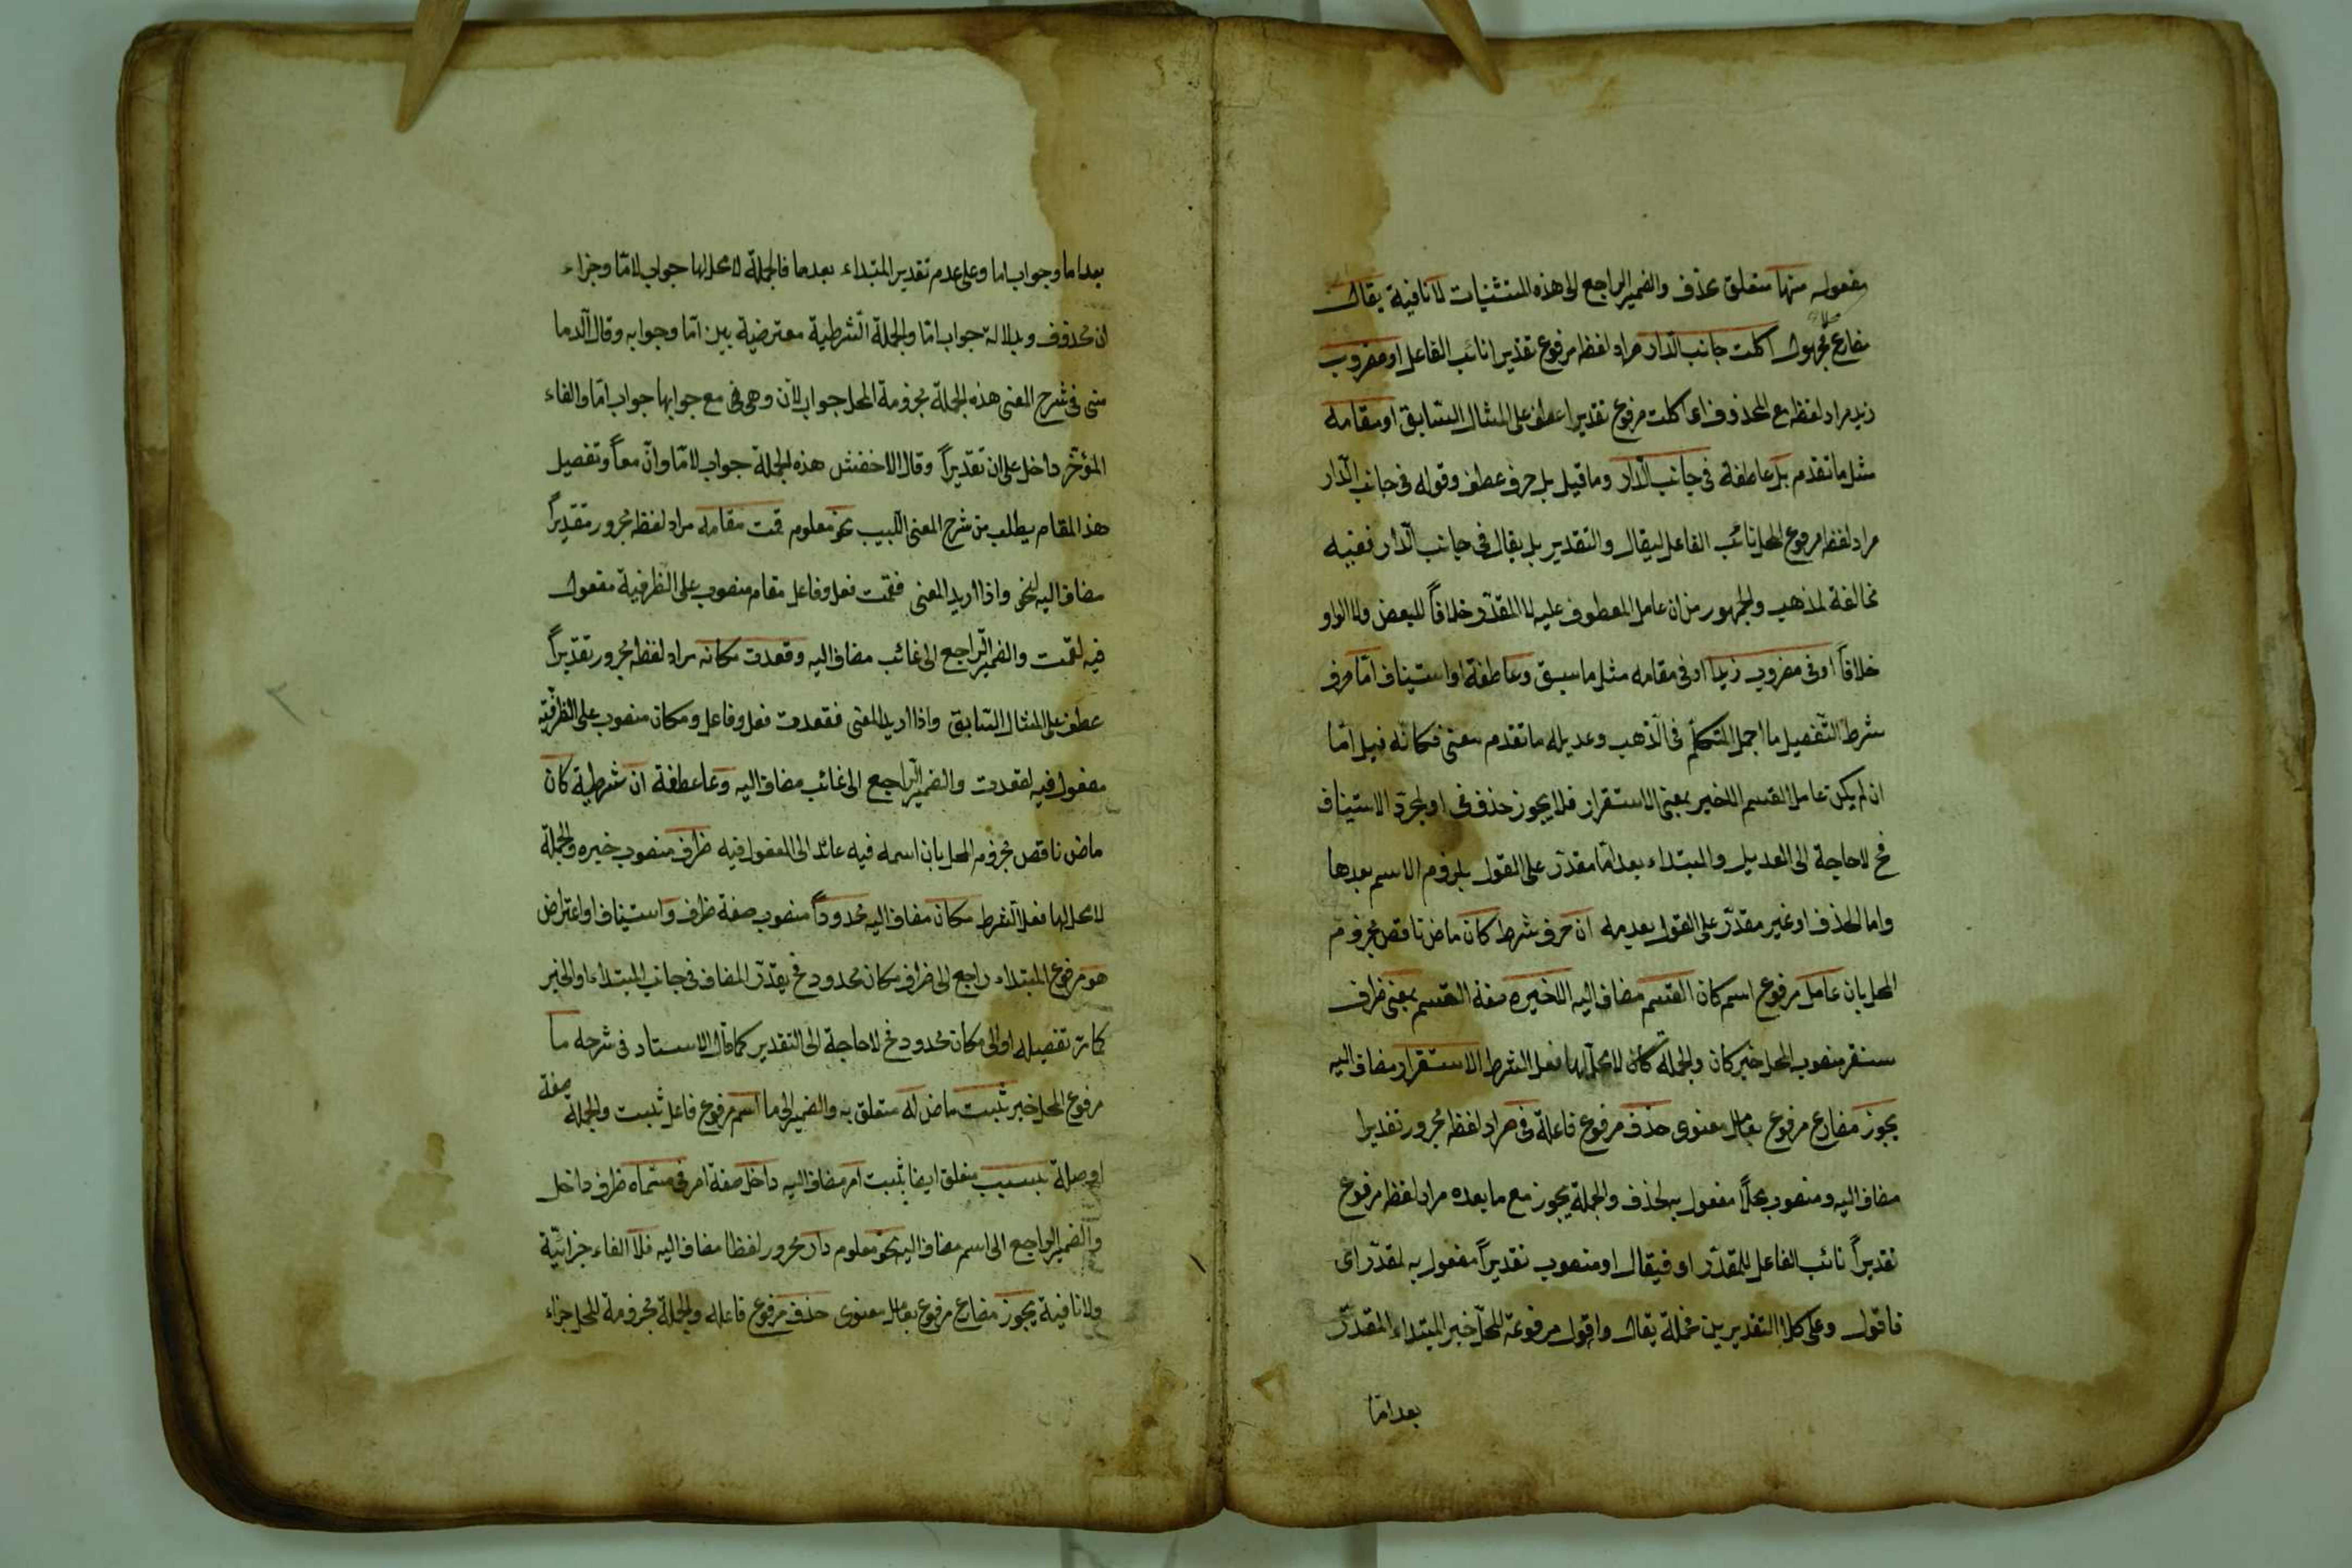 مفعوله منها متعلق بحذف والضمير الراجع الى هذه المستثنيات لا نافية يقال
مضارع مجهول اكلت جانب الدار مراد لفظه مرفوع تقديرا نائب الفاعل او مضروب
زيد مراد لفظه مع المحذوف اى اكلت مرفوع تقديرا عطف على المثال السابق او مقامه
مثل ما تقدم بل عاطفة فى جانب الدار وما قيل بل حرف عطف وقوله فى جانب الدار
مراد لفظه مرفوع المحل نائب الفاعل ليقال والتقدير بل يقال فى جانب الدار ففيه
مخالفة لمذهب والجمهور من ان عامل المعطوف عليه لا المقدر خلافاً للبعض ولا الواو
خلافاً او فى مضروب زيد او فى مقامه مثل ما سبق وعاطفة او استيناف اما حرف
شرط التفصيل ما اجمل المتكلم فى الذهب وعديله ما تقدم معنى فكانه قيل اما
ان لم يكن عامل القسم الاخير بمعنى الاستقرار فلا يجوز حذف فى او لمجرد الاستيناف
فح لا حاجة الى العديل والمبتداء بعد اما مقدر على القول بلزوم الاسم بعدها
واما الحذف او غير مقدر على القول بعدمه ان حرف شرط كان ماض ناقص مجزوم
المحل بان عامل مرفوع اسم كان القسم مضاف اليه الاخير صفة القسم بمعنى ظرف
مستقر منصوب المحل خبر كان والجملة كان لا محل لها فعل الشرط الاستقرار مضاف اليه
يجوز مضارع مرفوع بعامل معنوى حذف مرفوع فاعله فى مراد لفظه مجرور تقديرا
مضاف اليه ومنصوب محلاً مفعول به لحذف والجملة يجوز مع ما بعده مراد لفظه مرفوع
تقديراً نائب الفاعل للمقدر او فيقال او منصوب تقديراً مفعول به لمقدر اى
فاقول وعلى كلا التقديرين فجملة يقال واقول مرفوعة المحل خبر المبتداء المقدر
بعد اما
بعد اما وجواب اما وعلى عدم تقدير المبتداء بعدها فالجملة لا محل لها جواب لاما وجزاء
ان محذوف وبدلالة جواب اما والجملة الشرطية معترضية بين اما وجوابه وقال الدما
منى فى شرح المغنى هذه الجملة مجزومة المحل جواب لان وهى فى مع جوابها جواب اما والفاء
المؤخر داخل على ان تقديراً وقال الاخفش هذه الجملة جواب لاما وان معاً وتفصيل
هذا المقام يطلب من شرح المغنى اللبيب نحو معلوم قمت مقامه مراد لفظه مجرور تقديراً
مضاف اليه لنحو واذا اريد المعنى فقمت فعل وفاعل مقام منصوب على الظرفية مفعول
فيه لقمت والضمير الراجع الى غائب مضاف اليه وقعدت مكانه مراد لفظه مجرور تقديراً
عطف على المثال السابق واذا اريد المعنى فقعدت فعل وفاعل ومكان منصوب على الظرفية
مفعول فيه لقعدت والضمير الراجع الى غائب مضاف اليه وعاعطفة ان شرطية كان
ماض ناقص مجزوم المحل بان اسمه فيه عائد الى المفعول فيه ظرف منصوب خبره والجملة
لا محل لها فعل الشرط مكان مضاف اليه محدوداً منصوب صفة ظرف واستيناف او اعتراض
هو مرفوع المبتداء راجع الى ظرف مكان محدود فح يقدر المضاف فى جانب المبتداء او الخبر
كما مر تفصيله او الى مكان محدود فح لا حاجة الى التقدير كما قال الاستاد فى شرحه ما
مرفوع المحل خبر ثبت ماض له متعلق به والضمير الى ما اسم مرفوع فاعل ثبت والجملة صفة
او صلة بسبب متعلق ايضا بثبت امر مضاف اليه داخل صفة امر فى مسماه ظرف داخل
والضمير الراجع الى اسم مضاف اليه نحو معلوم دار مجرور لفظا مضاف اليه فلا الفاء جزائية
ولا نافية يجوز مضارع مرفوع بعامل معنوى حذف مرفوع فاعله والجملة مجزومة المحل جزاء